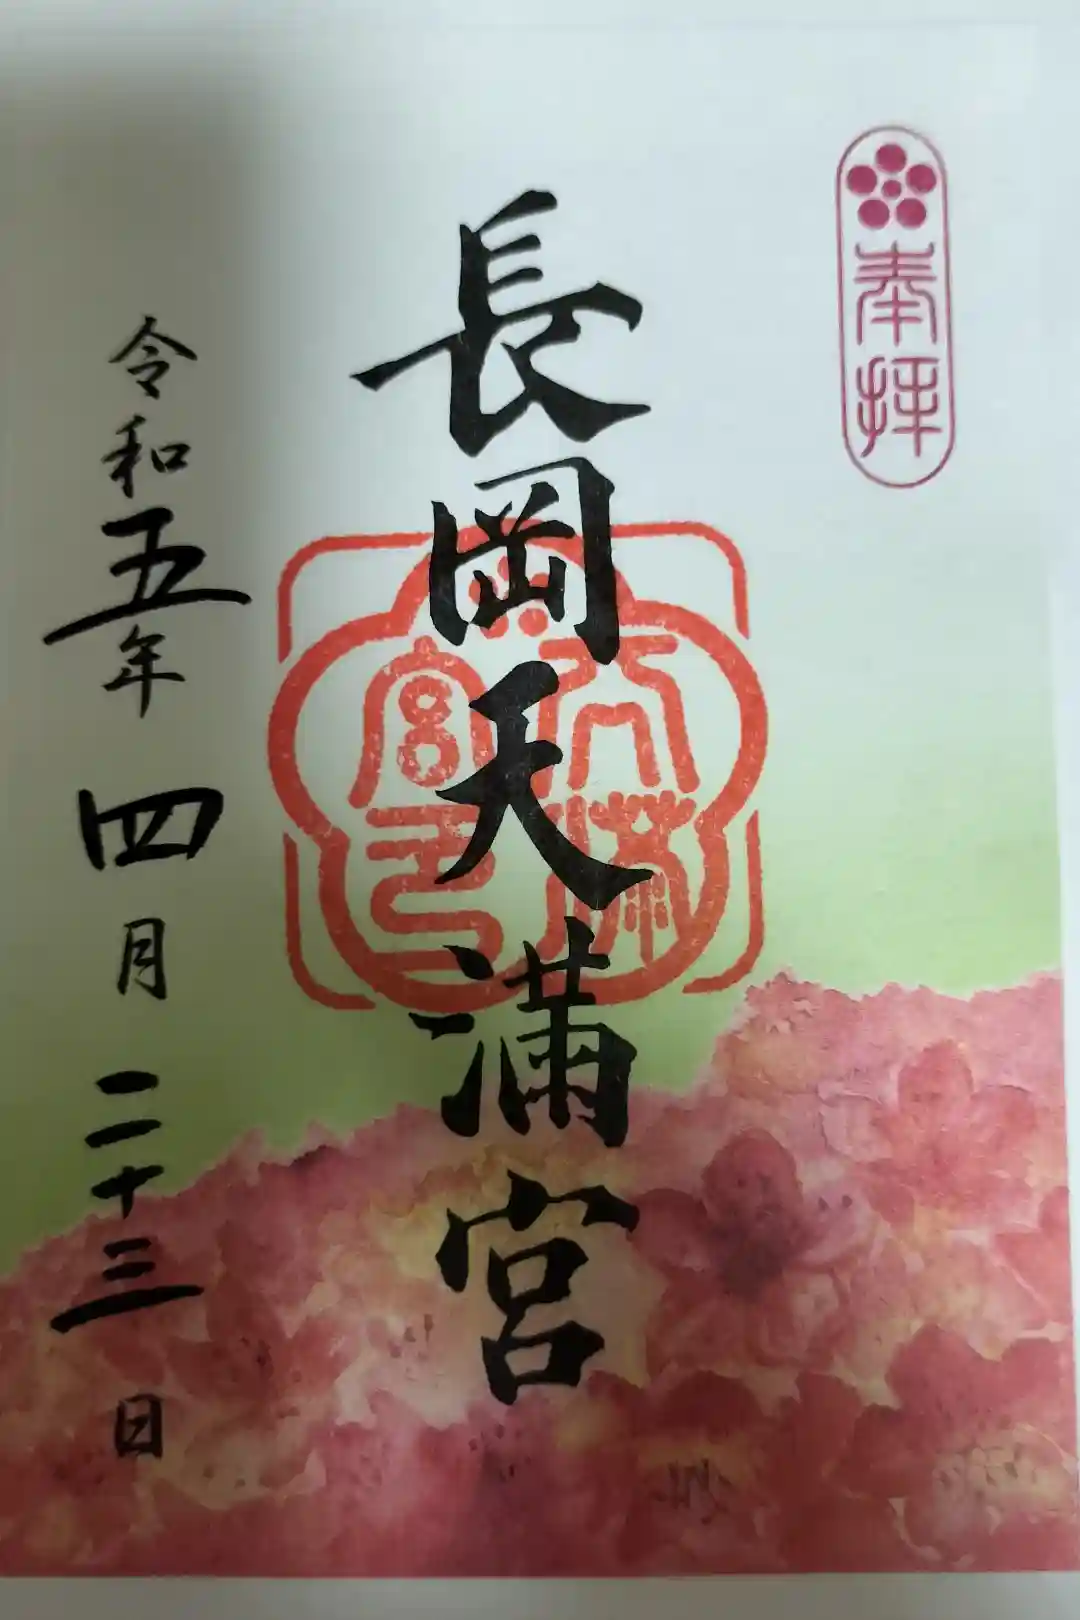 奉拝
長岡天満宮
天満宮印
令和五年四月二十三日